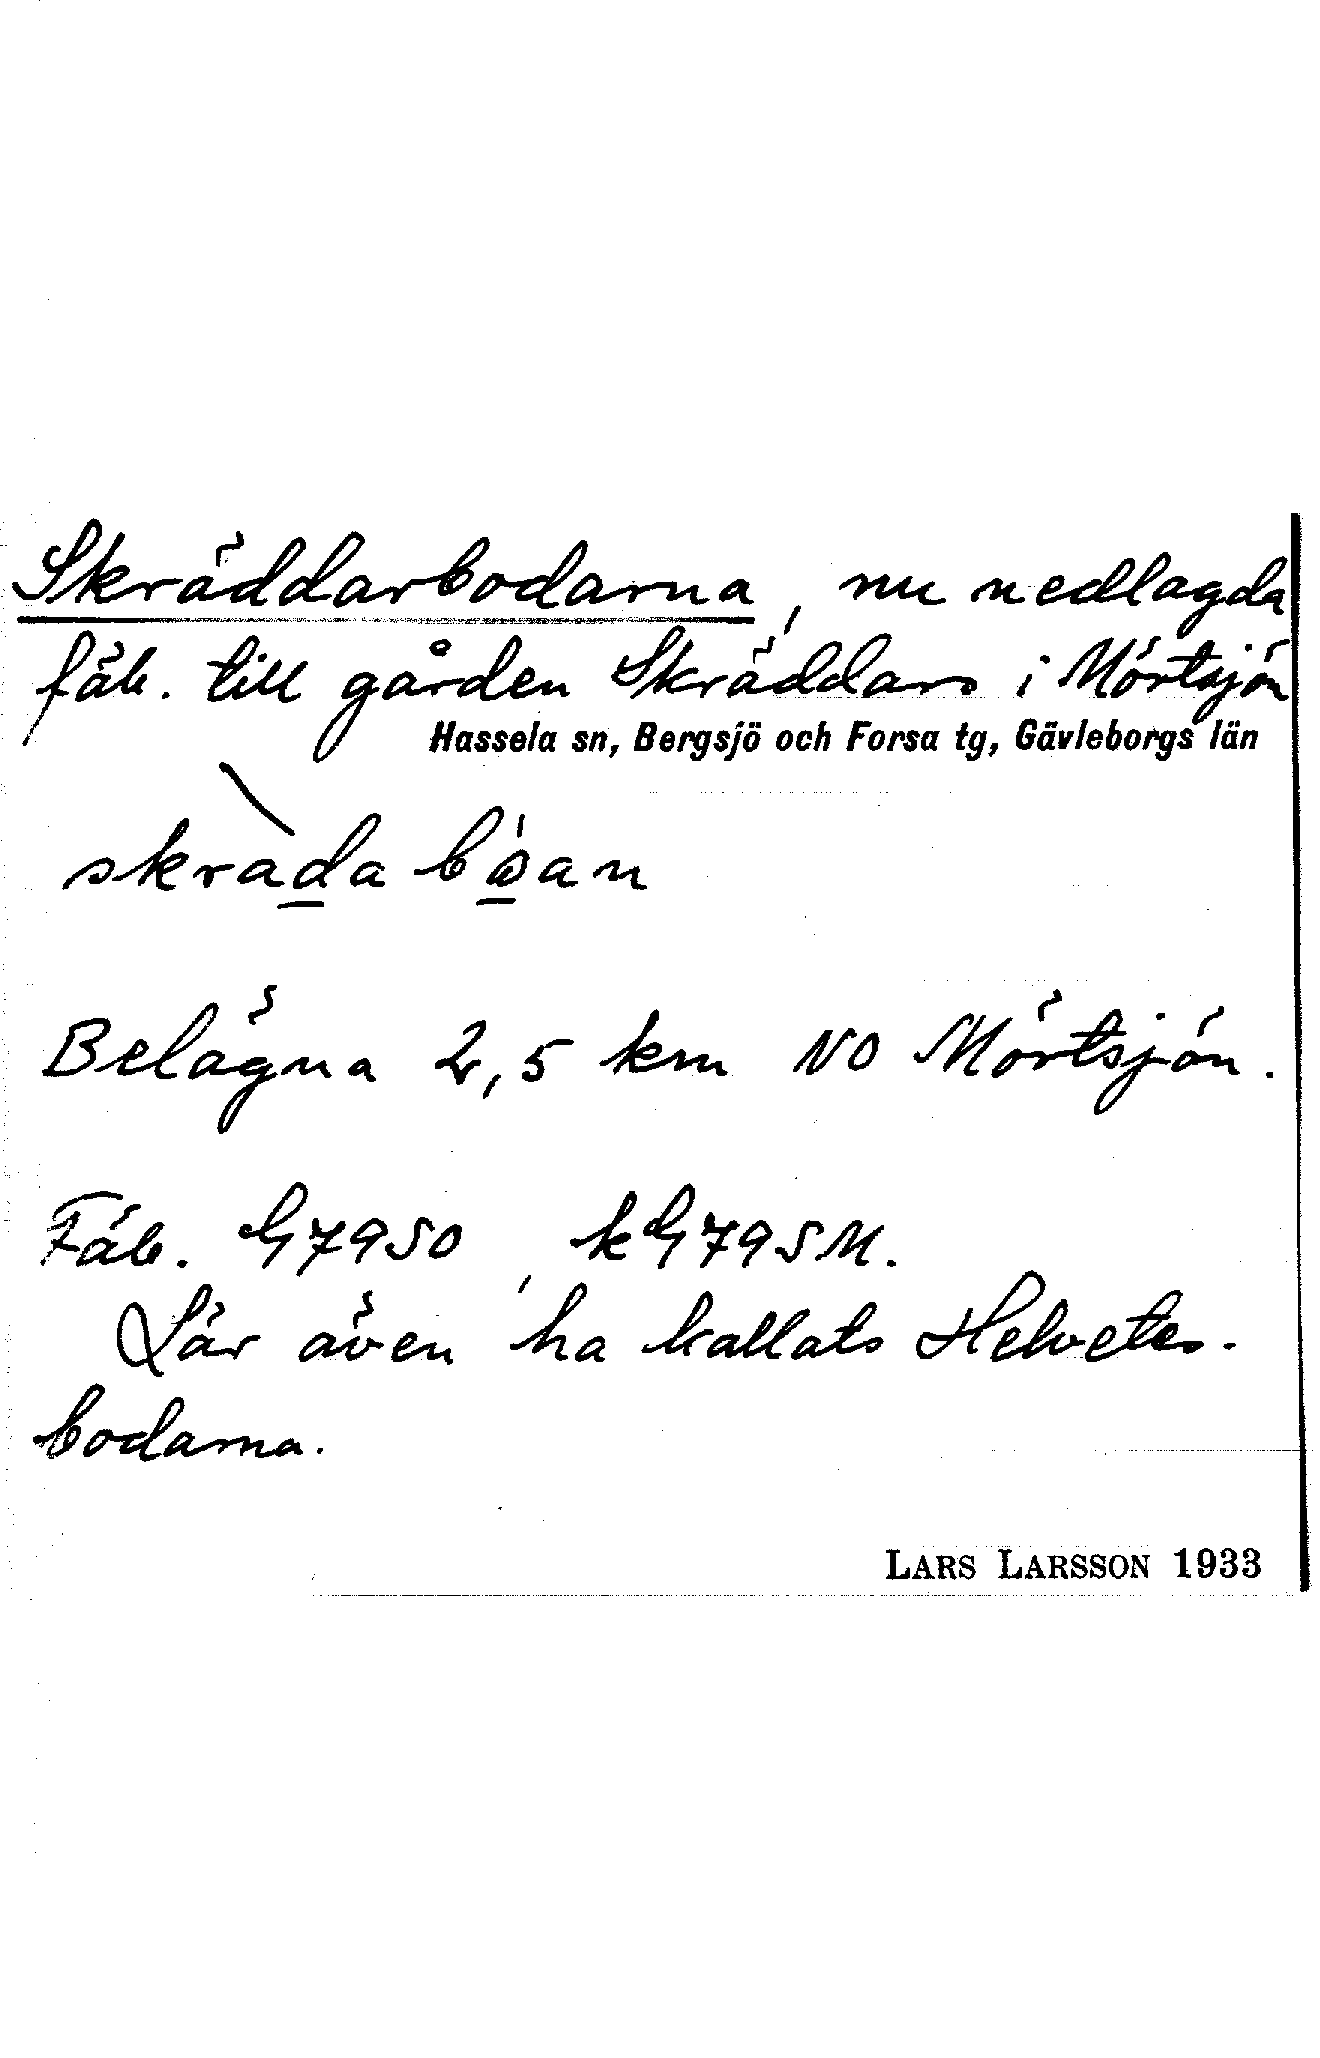 Skräddarbodarna, nu nedlagda
fäb. till gården Skräddars i Mörtsjön
Hassela sn, Bergsjö och Forsa tg, Gävleborgs län
skràda bóan
Belägna 2,5 km NO Mörtsjön.
Fäb. G7950, kG795M.
Lär även ha kallats Helvetes-
bodarna.
LARS LARSSON 1933